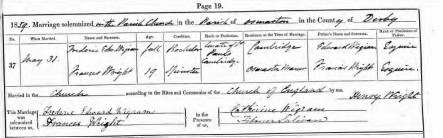 Page 19.
1859. Marriage solemnized in the Parish Church in the Parish of Osmaston in the County of Derby
No. When Married. Name and Surname. Age. Condition. Rank or Profession. Residence at the Time of Marriage. Father's Name and Surname. Rank or Profession of Father.
37 May 31. Frederic Edwd Wigram full Bachelor Curate of St Cambridge Edward Wigram Esquire
Cambridge
Frances Wright 19 Spinster Osmaston Manor Francis Wright Esquire.
Married in the Church according to the Rites and Ceremonies of the Church of England by me, Henry Wright
This Marriage was solemnized between us, Frederic Edward Wigram Frances Wright
In the Presence of us, Catherine Wigram